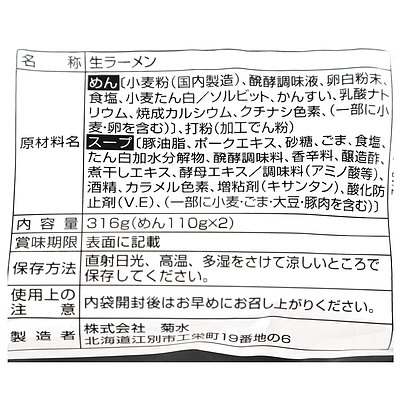 名称 生ラーメン
原材料名 めん〔小麦粉(国内製造)、醗酵調味液、卵白粉末、
食塩、小麦たん白／ソルビット、かんすい、乳酸ナト
リウム、焼成カルシウム、クチナシ色素、(一部に小
麦・卵を含む)〕、打粉(加工でん粉)
スープ〔豚油脂、ポークエキス、砂糖、ごま、食塩、
たん白加水分解物、醗酵調味料、香辛料、醸造酢、
煮干しエキス、酵母エキス／調味料(アミノ酸等)、
酒精、カラメル色素、増粘剤(キサンタン)、酸化防
止剤(V.E)、(一部に小麦・ごま・大豆・豚肉を含む)〕
内容量 316g(めん110g×2)
賞味期限 表面に記載
保存方法 直射日光、高温、多湿をさけて涼しいところで
保存してください。
使用上の注意 内袋開封後はお早めにお召し上がりください。
製造者 株式会社 菊水
北海道江別市工栄町19番地の6